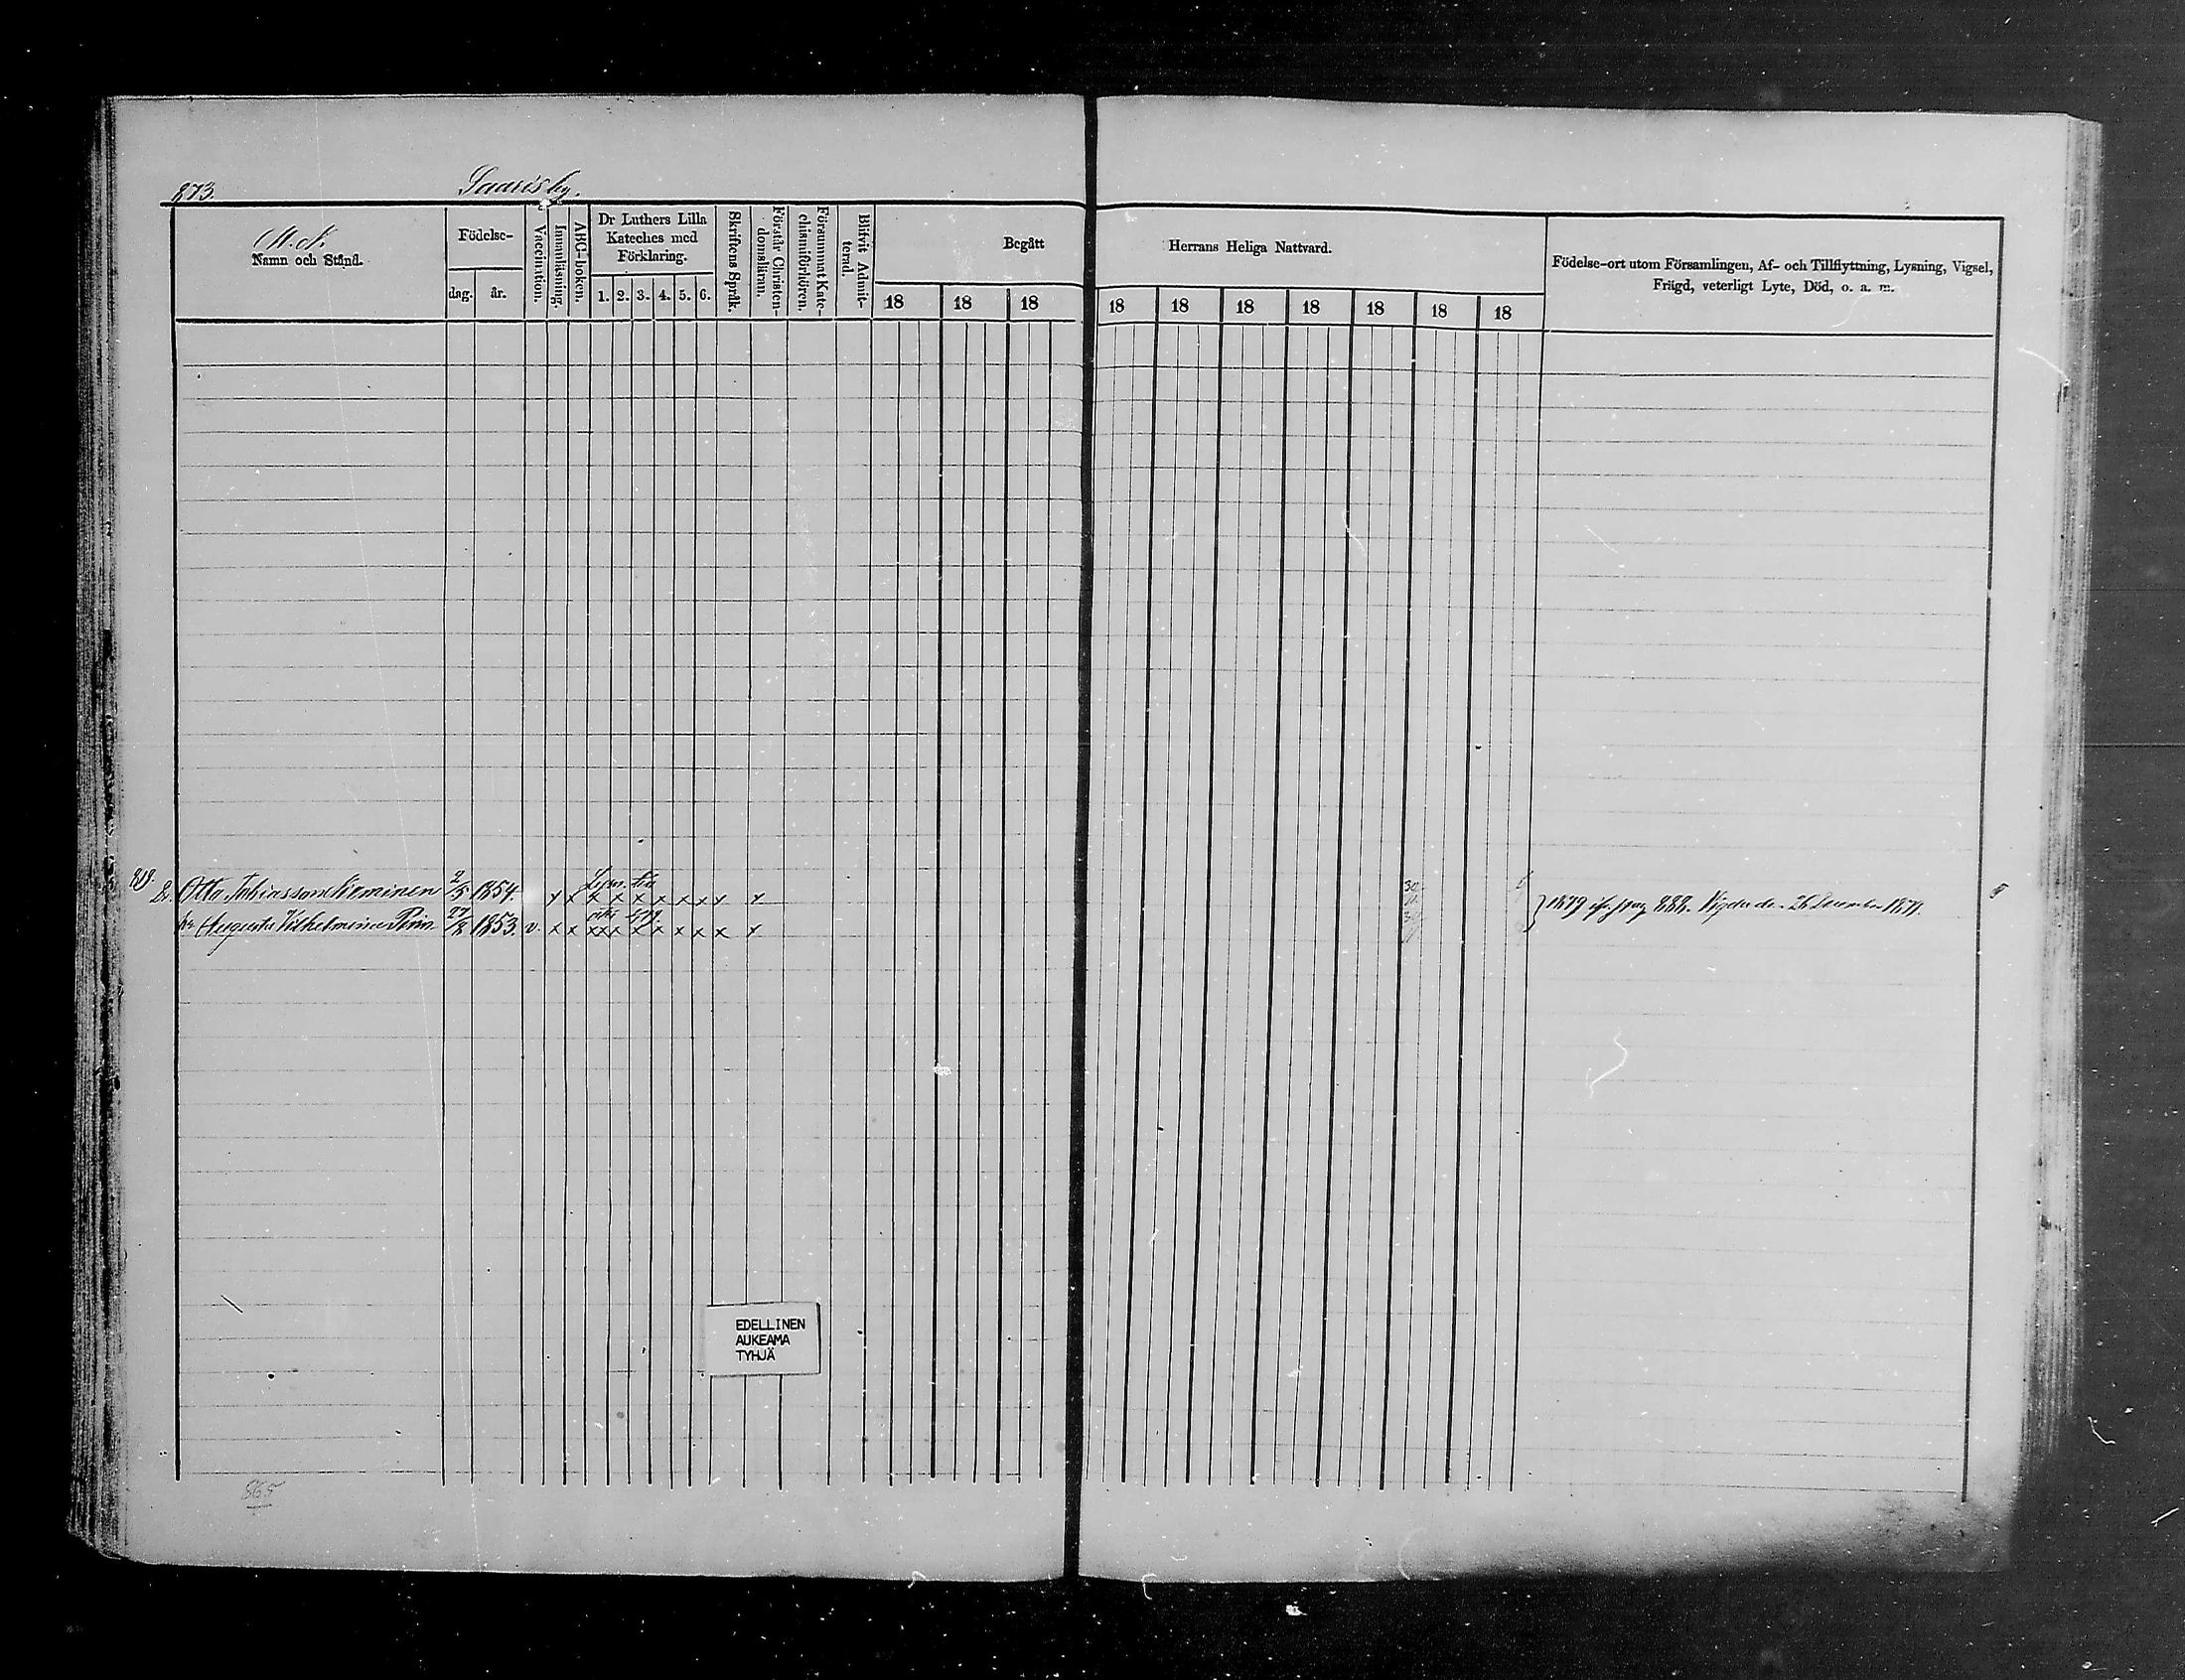 873.
Saaris by.
Namn och Stånd.
Födelse-
dag. år.
Vaccination.
Innanläsning.
ABC-boken.
Dr Luthers Lilla
Kateches med
Förklaring.
1. 2. 3. 4. 5. 6.
Skriftens Språk.
Förstår Christen-
domsläran.
Försummat Kate-
chismiförhören.
Blifvit Admit-
terad.
Begått
18 18 18
Herrans Heliga Nattvard.
18 18 18 18 18 18 18
Födelse-ort utom Församlingen, Af- och Tillflyttning, Lysning, Vigsel,
Frägd, veterligt Lyte, Död, o. a. m.
819.
Dr. Otto Tobiasson Nieminen 2/5 1854. x x x x x x x x x x
30/11
1879 ifr. pag 888. Vigda den 26 December 1879.
hu Augusta Vilhelmina 27/8 1853. v. x x x x x x x x x x x
30/11
EDELLINEN
AUKEAMA
TYHJÄ
865